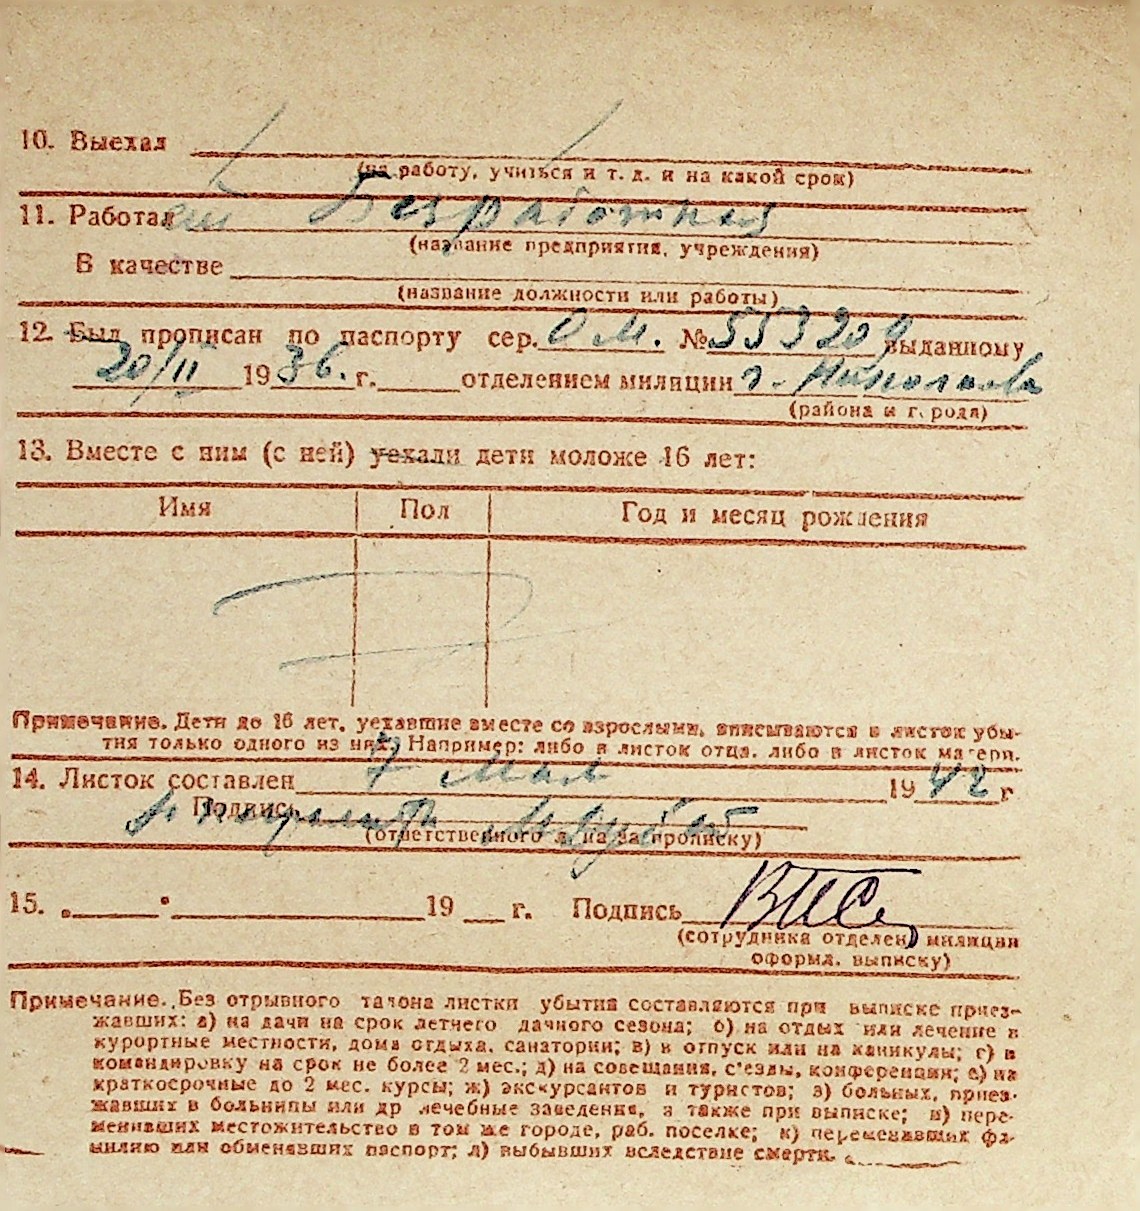 10. Выехал
(на работу, учиться и т. д. и на какой срок)
11. Работал Безработная
(название предприятия, учреждения)
В качестве
(название должности или работы)
12. Был прописан по паспорту сер. О М. № 553209 выданному
20/II 1936. г. отделением милиции г. Николаева
(района и города)
13. Вместе с ним (с ней) уехали дети моложе 16 лет:
Имя Пол Год и месяц рождения
Примечание. Дети до 16 лет, уехавшие вместе со взрослыми, вписываются в листок убы-
тия только одного из них. Например: либо в листок отца, либо в листок матери.
14. Листок составлен 7 Мая 1942 г
Подпись
(ответственного за прописку)
15. 19 г. Подпись
(сотрудника отделен. милиции
оформл. выписку)
Примечание. Без отрывного талона листки убытия составляются при выписке приез-
жавших: а) на дачи на срок летнего дачного сезона; б) на отдых или лечение в
курортные местности, дома отдыха, санатории; в) в отпуск или на каникулы; г) в
командировку на срок не более 2 мес.; д) на совещания, с'езды, конференции; е) на
краткосрочные до 2 мес. курсы; ж) экскурсантов и туристов; з) больных, приез-
жавших в больницы или др лечебные заведения, а также при выписке; и) пере-
менивших местожительство в том же городе, раб. поселке; к) переменивших фа-
милию или обменявших паспорт; л) выбывших вследствие смерти.